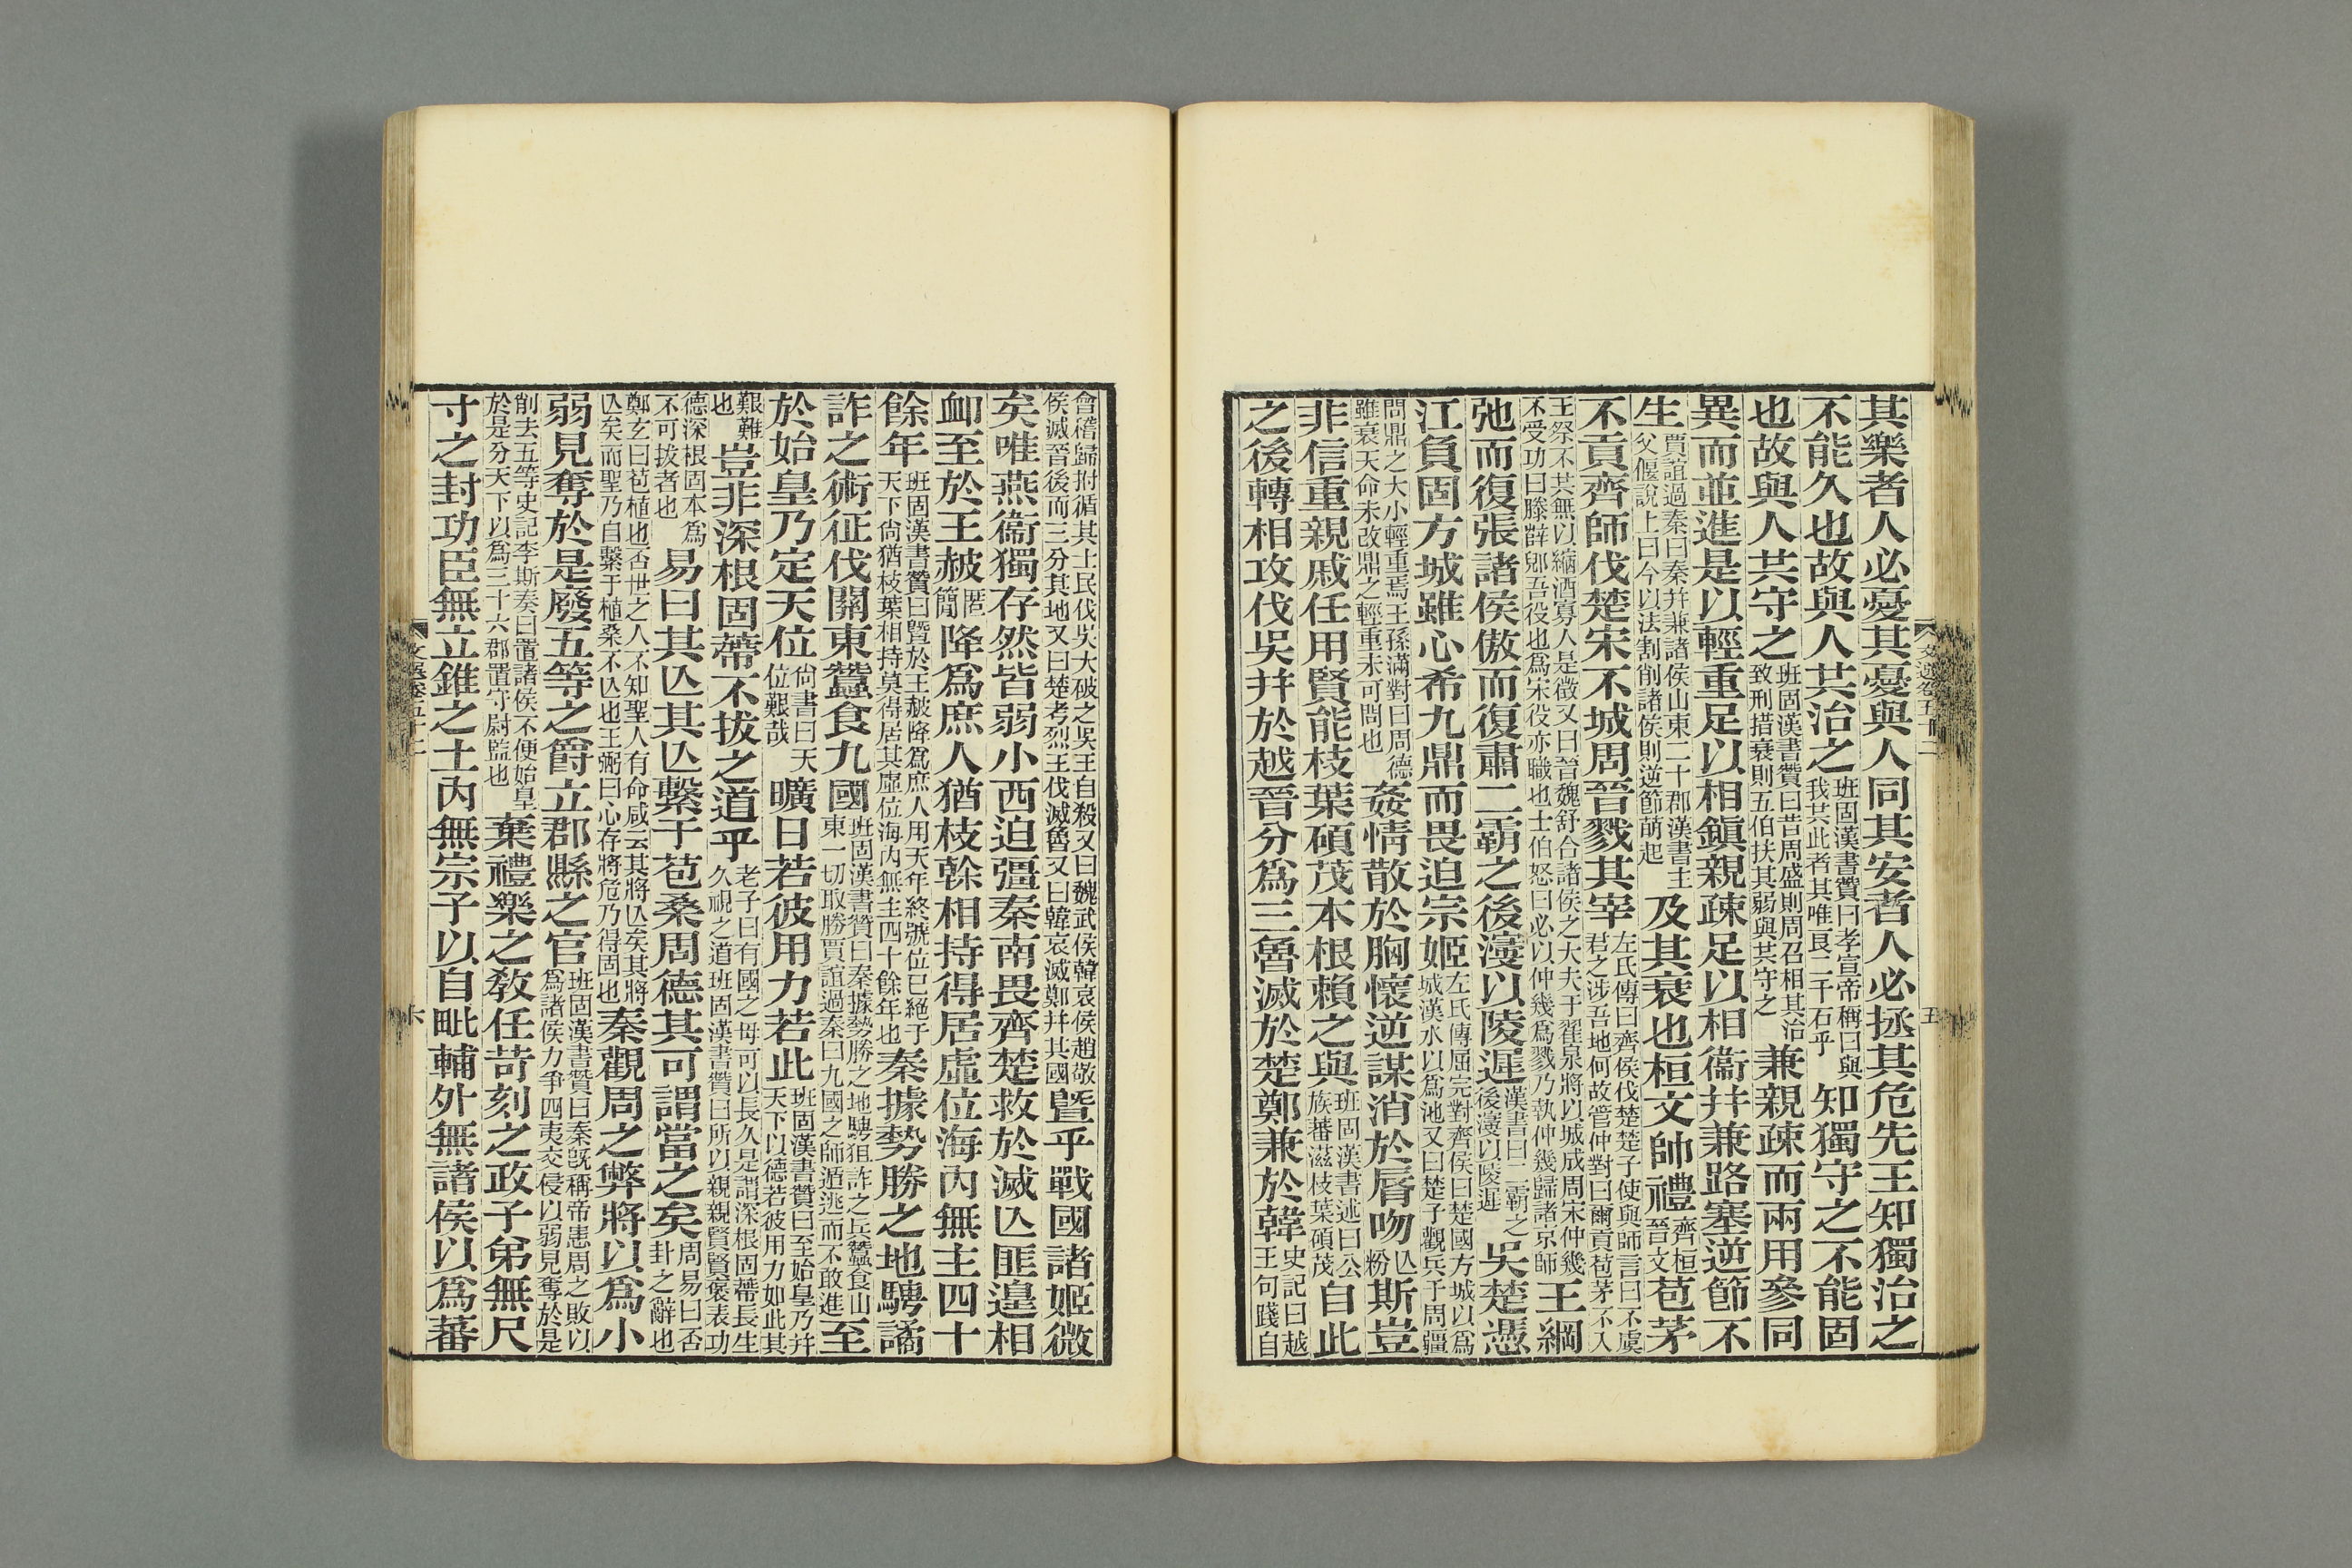 其樂者人必憂其憂與人同其安者人必拯其危先王知獨治之
不能久也故與人共治之班固漢書贊曰孝宣帝稱曰與我共此者其唯良二千石乎知獨守之不能固
也故與人共守之班固漢書贊曰昔周盛則周召相其治致刑措衰則五伯扶其弱與共守之兼親疎而兩用參同
異而並進是以輕重足以相鎭親疎足以相衞并兼路塞逆節不
生賈誼過秦曰秦并兼諸侯山東二十郡漢書主父偃說上曰今以法割削諸侯則逆節萌起及其衰也桓文帥禮齊桓晉文苞茅
不貢齊師伐楚宋不城周晉戮其宰左氏傳曰齊侯伐楚楚子使與師言曰不虞君之涉吾地何故管仲對曰爾貢苞茅不入
王祭不共無以縮酒寡人是徵又曰晉魏舒合諸侯之大夫于翟泉將以城成周宋仲幾不受功曰滕薛郳吾役也爲宋役亦職也士伯怒曰必以仲幾爲戮乃執仲幾歸諸京師王綱
弛而復張諸侯傲而復肅二霸之後寖以陵遲漢書曰二霸之後寖以陵遲吳楚憑
江負固方城雖心希九鼎而畏迫宗姬左氏傳屈完對齊侯曰楚國方城以爲城漢水以爲池又曰楚子觀兵于周疆
問鼎之大小輕重焉王孫滿對曰周德雖衰天命未改鼎之輕重未可問也姦情散於胸懷逆謀消於脣吻亾粉斯豈
非信重親戚任用賢能枝葉碩茂本根賴之與班固漢書述曰公族蕃滋枝葉碩茂自此
之後轉相攻伐吳并於越晉分爲三魯滅於楚鄭兼於韓史記曰越王句踐自
文選卷五十二
五
會稽歸拊循其士民伐吳大破之吳王自殺又曰魏武侯韓哀侯趙敬侯滅晉後而三分其地又曰楚考烈王伐滅魯又曰韓哀滅鄭并其國曁乎戰國諸姬微
矣唯燕衞獨存然皆弱小西迫彊秦南畏齊楚救於滅亾匪遑相
卹至於王赧匿簡降爲庶人猶枝榦相持得居虛位海內無主四十
餘年班固漢書贊曰曁於王赧降爲庶人用天年終號位已絶于天下尙猶枝葉相持莫得居其虛位海內無主四十餘年也秦據勢勝之地騁譎
詐之術征伐關東蠶食九國班固漢書贊曰秦據勢勝之地騁狙詐之兵蠶食山東一切取勝賈誼過秦曰九國之師遁逃而不敢進至
於始皇乃定天位尙書曰天位艱哉曠日若彼用力若此班固漢書贊曰至始皇乃并天下以德若彼用力如此其
艱難也豈非深根固蔕不拔之道乎老子曰有國之母可以長久是謂深根固蔕長生久視之道班固漢書贊曰所以親親賢賢褒表功
德深根固本爲不可拔者也易曰其亾其亾繫于苞桑周德其可謂當之矣周易曰否卦之辭也
鄭玄曰苞植也否世之人不知聖人有命咸云其將亾矣其將亾矣而聖乃自繫于植桑不亾也王弼曰心存將危乃得固也秦觀周之弊將以爲小
弱見奪於是廢五等之爵立郡縣之官班固漢書贊曰秦旣稱帝患周之敗以爲諸侯力爭四夷交侵以弱見奪於是
削去五等史記李斯奏曰置諸侯不便始皇於是分天下以爲三十六郡置守尉監也棄禮樂之敎任苛刻之政子弟無尺
寸之封功臣無立錐之土內無宗子以自毗輔外無諸侯以爲蕃
文選卷五十二
六